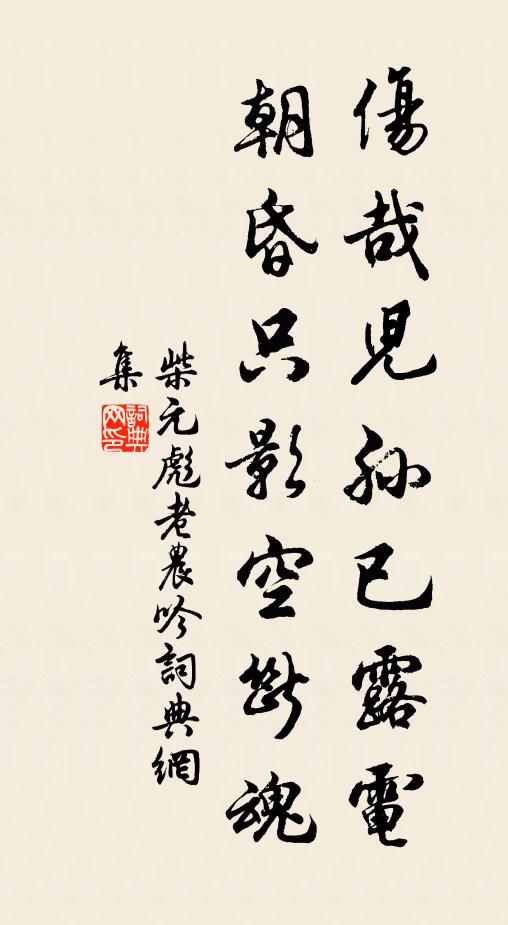 傷哉児孫已露電
朝昏只影空斷魂
柴元彪老農吟詞典網
集
詞典
网印